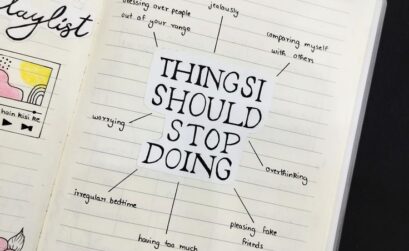 aylist
hain kisi ke
obsessing over people
out of your range
jealously
comparing myself
with others
THINGS I
SHOULD
STOP
DOING
worrying
overthinking
irregular bedtime
having too much
pleasing fake
friends